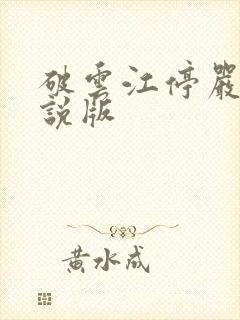 破雲江停嚴
說版
黃水成